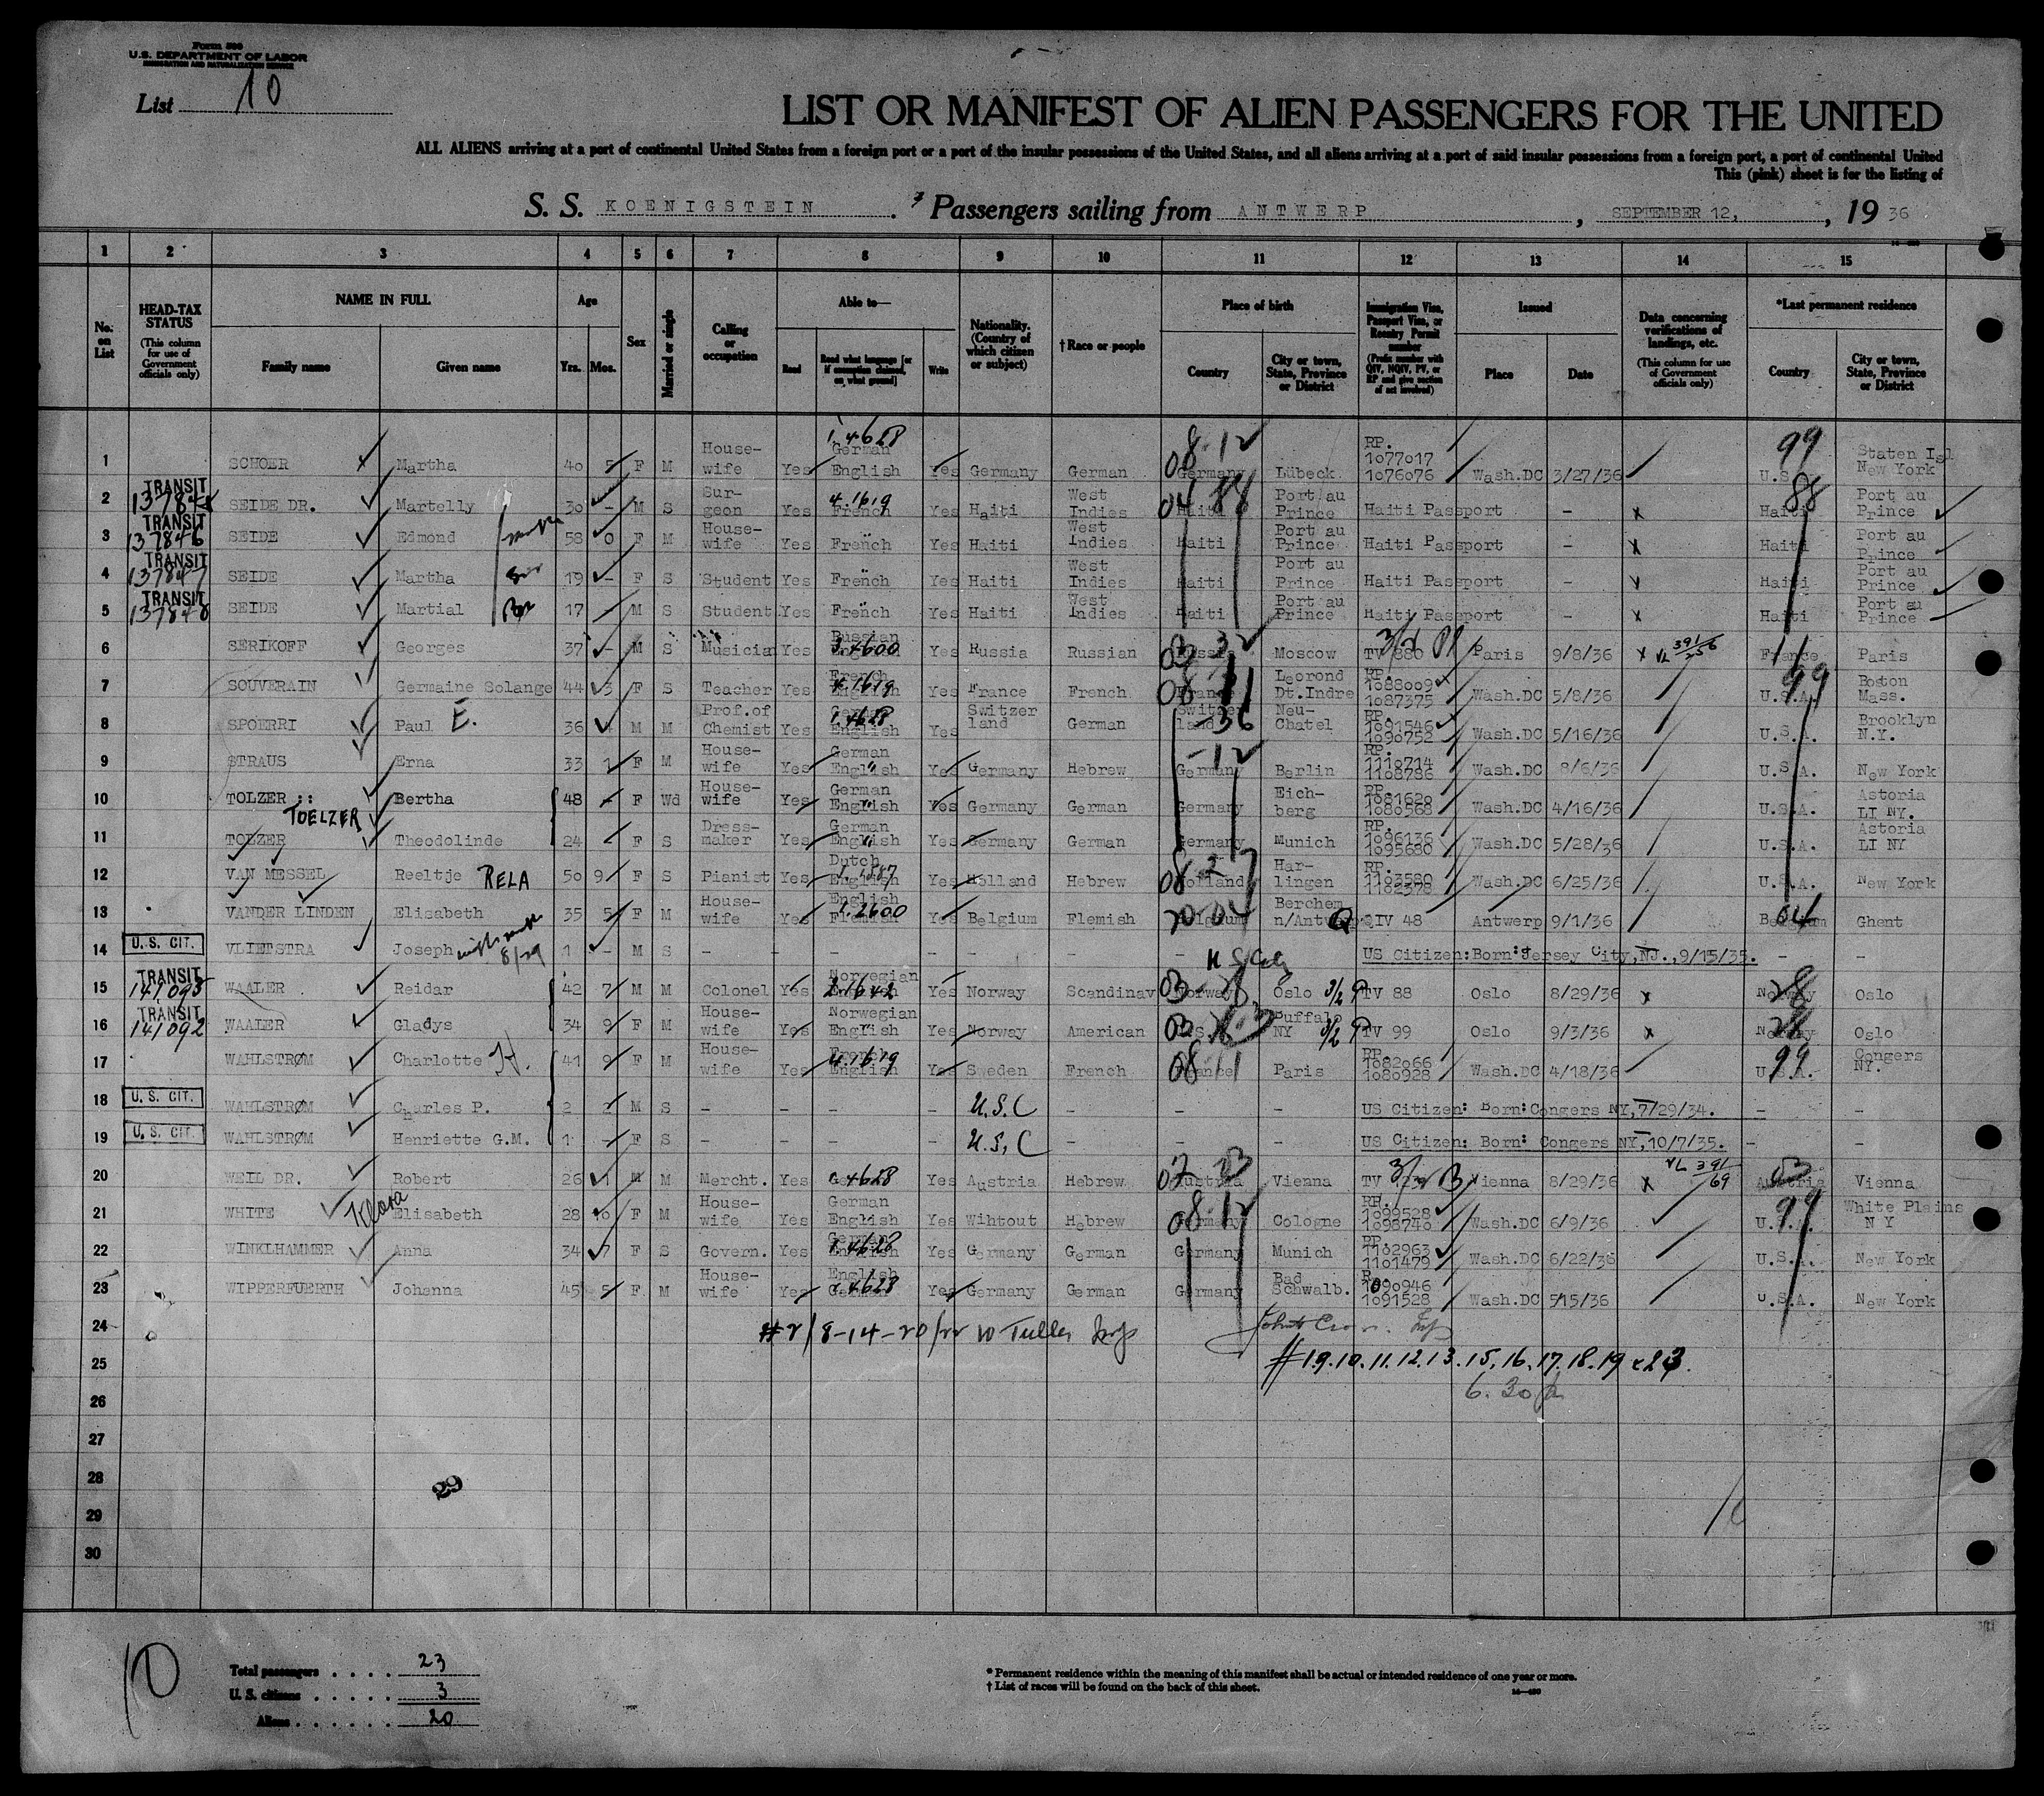 Form 500
U.S. DEPARTMENT OF LABOR
IMMIGRATION AND NATURALIZATION SERVICE
List 10
LIST OR MANIFEST OF ALIEN PASSENGERS FOR THE UNITED
ALL ALIENS arriving at a port of continental United States from a foreign port or a port of the insular possessions of the United States, and all aliens arriving at a port of said insular possessions from a foreign port, a port of continental United
This (pink) sheet is for the listing of
S. S. KOENIGSTEIN. Passengers sailing from ANTWERP, SEPTEMBER 12, 1936
1 2 3 4 5 6 7 8 9 10 11 12 13 14 15
No. on List
HEAD-TAX STATUS (This column for use of Government officials only)
NAME IN FULL Family name Given name
Age Yrs. Mos.
Sex
Married or single
Calling or occupation
Able to— Read Read what language [or if exemption claimed, on what ground] Write
Nationality. (Country of which citizen or subject)
† Race or people
Place of birth Country City or town, State, Province or District
Immigration Visa, Passport Visa, or Reentry Permit number (Prefix number with QIV, NQIV, PV, or RP and give section of act involved)
Issued Place Date
Data concerning verifications of landings, etc. (This column for use of Government officials only)
*Last permanent residence Country City or town, State, Province or District
1 SCHOER Martha 40 5 F M House-wife Yes German English Yes Germany German Germany Lübeck RP. 1077017 1076076 Wash.DC 3/27/36 99 U.S. Staten Isl New York
2 TRANSIT SEIDE DR. Martelly 30 - M S Sur-geon Yes French Yes Haiti West Indies Haiti Port au Prince Haiti Passport - x Haiti Port au Prince
3 TRANSIT 137846 SEIDE Edmond 58 0 F M House-wife Yes French Yes Haiti West Indies Haiti Port au Prince Haiti Passport - x Haiti Port au Prince
4 TRANSIT 137847 SEIDE Martha 19 - F S Student Yes French Yes Haiti West Indies Haiti Port au Prince Haiti Passport - Haiti Port au Prince
5 TRANSIT 137848 SEIDE Martial 17 - M S Student Yes French Yes Haiti West Indies Haiti Port au Prince Haiti Passport - x Haiti Port au Prince
6 SERIKOFF Georges 37 - M S Musician Yes Russian Yes Russia Russian Russia Moscow TV 880 Paris 9/8/36 x France Paris
7 SOUVERAIN Germaine Solange 44 3 F S Teacher Yes French English Yes France French France Leorond Dt.Indre RP. 1088009 1087375 Wash.DC 5/8/36 99 U.S.A. Boston Mass.
8 SPOERRI Paul E. 36 M M Prof.of Chemist Yes German English Yes Switzer land German Switzer land Neu-Chatel RP. 1091546 1090752 Wash.DC 5/16/36 U.S.A. Brooklyn N.Y.
9 STRAUS Erna 33 1 F M House-wife Yes German English Yes Germany Hebrew Germany Berlin RP. 1110714 1108786 Wash.DC 8/6/36 U.S.A. New York
10 TOLZER TOELZER Bertha 48 - F Wd House-wife Yes German English Yes Germany German Germany Eich-berg RP 1081620 1080568 Wash.DC 4/16/36 U.S.A. Astoria LI NY.
11 TOLZER Theodolinde 24 - F S Dress-maker Yes German English Yes Germany German Germany Munich RP. 1096136 1095680 Wash.DC 5/28/36 U.S.A. Astoria LI NY
12 VAN MESSEL Reeltje RELA 50 9 F S Pianist Yes Dutch English Yes Holland Hebrew Holland Har-lingen RP. 1103580 1102378 Wash.DC 6/25/36 U.S.A. New York
13 VANDER LINDEN Elisabeth 35 5 F M House-wife Yes English Flemish Yes Belgium Flemish Belgium Berchem n/Antwerp QIV 48 Antwerp 9/1/36 Belgium Ghent
14 U. S. CIT. VLIETSTRA Joseph 1 - M S - - - - - - - - US Citizen:Born:Jersey City,NJ.,9/15/35. - -
15 TRANSIT 141093 WAALER Reidar 42 7 M M Colonel Yes Norwegian English Yes Norway Scandinav Norway Oslo TV 88 Oslo 8/29/36 x Norway Oslo
16 TRANSIT 141092 WAALER Gladys 34 9 F M House-wife Yes Norwegian English Yes Norway American Buffalo NY TV 99 Oslo 9/3/36 x Norway Oslo
17 WAHLSTRØM Charlotte H. 41 9 F M House-wife Yes French English Yes Sweden French France Paris RP. 1082066 1080928 Wash.DC 4/18/36 99 U.S.A. Congers NY.
18 U. S. CIT. WAHLSTRØM Charles P. 2 2 M S - - - - U.S.C - - - US Citizen: Born:Congers NY,7/29/34. - -
19 U. S. CIT. WAHLSTRØM Henriette G.M. 1 - F S - - - - U.S.C - - - US Citizen: Born: Congers NY,10/7/35. - -
20 WEIL DR. Robert 26 1 M M Mercht. Yes Yes Austria Hebrew Austria Vienna TV Vienna 8/29/36 x Austria Vienna
21 WHITE Klara Elisabeth 28 10 F M House-wife Yes German English Yes Wihtout Hebrew Germany Cologne RP. 1099528 1098740 Wash.DC 6/9/36 99 U.S.A. White Plains N Y
22 WINKLHAMMER Anna 34 7 F S Govern. Yes German English Yes Germany German Germany Munich RP. 1102963 1101479 Wash.DC 6/22/36 U.S.A. New York
23 WIPPERFUERTH Johanna 45 5 F M House-wife Yes English German Yes Germany German Germany Bad Schwalb. 1090946 1091528 Wash.DC 5/15/36 U.S.A. New York
24
25 # 1.9.10.11.12.13.15.16.17.18.19 & 23.
26 6.30
27
28
29
29
30
10
Total passengers . . . . 23
U. S. citizens . . . . . 3
Aliens . . . . . . 20
* Permanent residence within the meaning of this manifest shall be actual or intended residence of one year or more.
† List of races will be found on the back of this sheet.